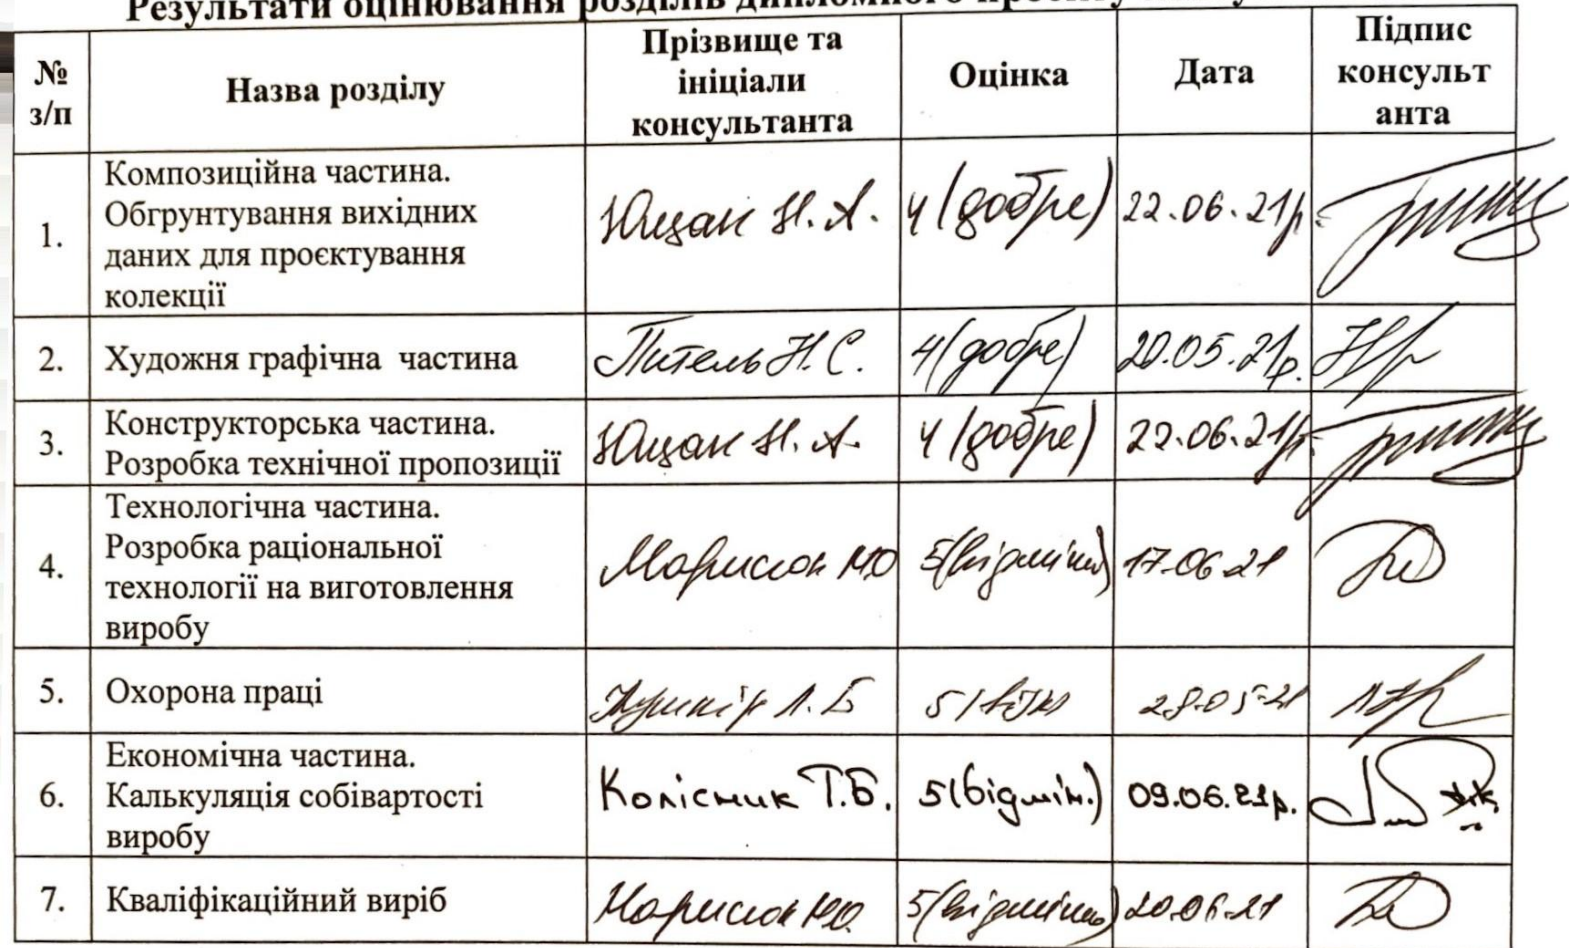 Результати оцінювання розділів дипломного проєкту
№ з/п
Назва розділу
Прізвище та
ініціали
консультанта
Оцінка
Дата
Підпис
консульт
анта
1.
Композиційна частина.
Обгрунтування вихідних
даних для проєктування
колекції
Юцан Н. А.
4 (добре)
22.06.21р.
2.
Художня графічна частина
Питель Н. С.
4 (добре)
20.05.21р.
3.
Конструкторська частина.
Розробка технічної пропозиції
Юцан Н. А.
4 (добре)
22.06.21р.
4.
Технологічна частина.
Розробка раціональної
технології на виготовлення
виробу
5 (відмінно)
17.06.21
5.
Охорона праці
Кушнір Л. Б
5
28.05.21
6.
Економічна частина.
Калькуляція собівартості
виробу
Колісник Т.Б.
5 (відмін.)
09.06.21р.
7.
Кваліфікаційний виріб
5 (відмінно)
20.06.21